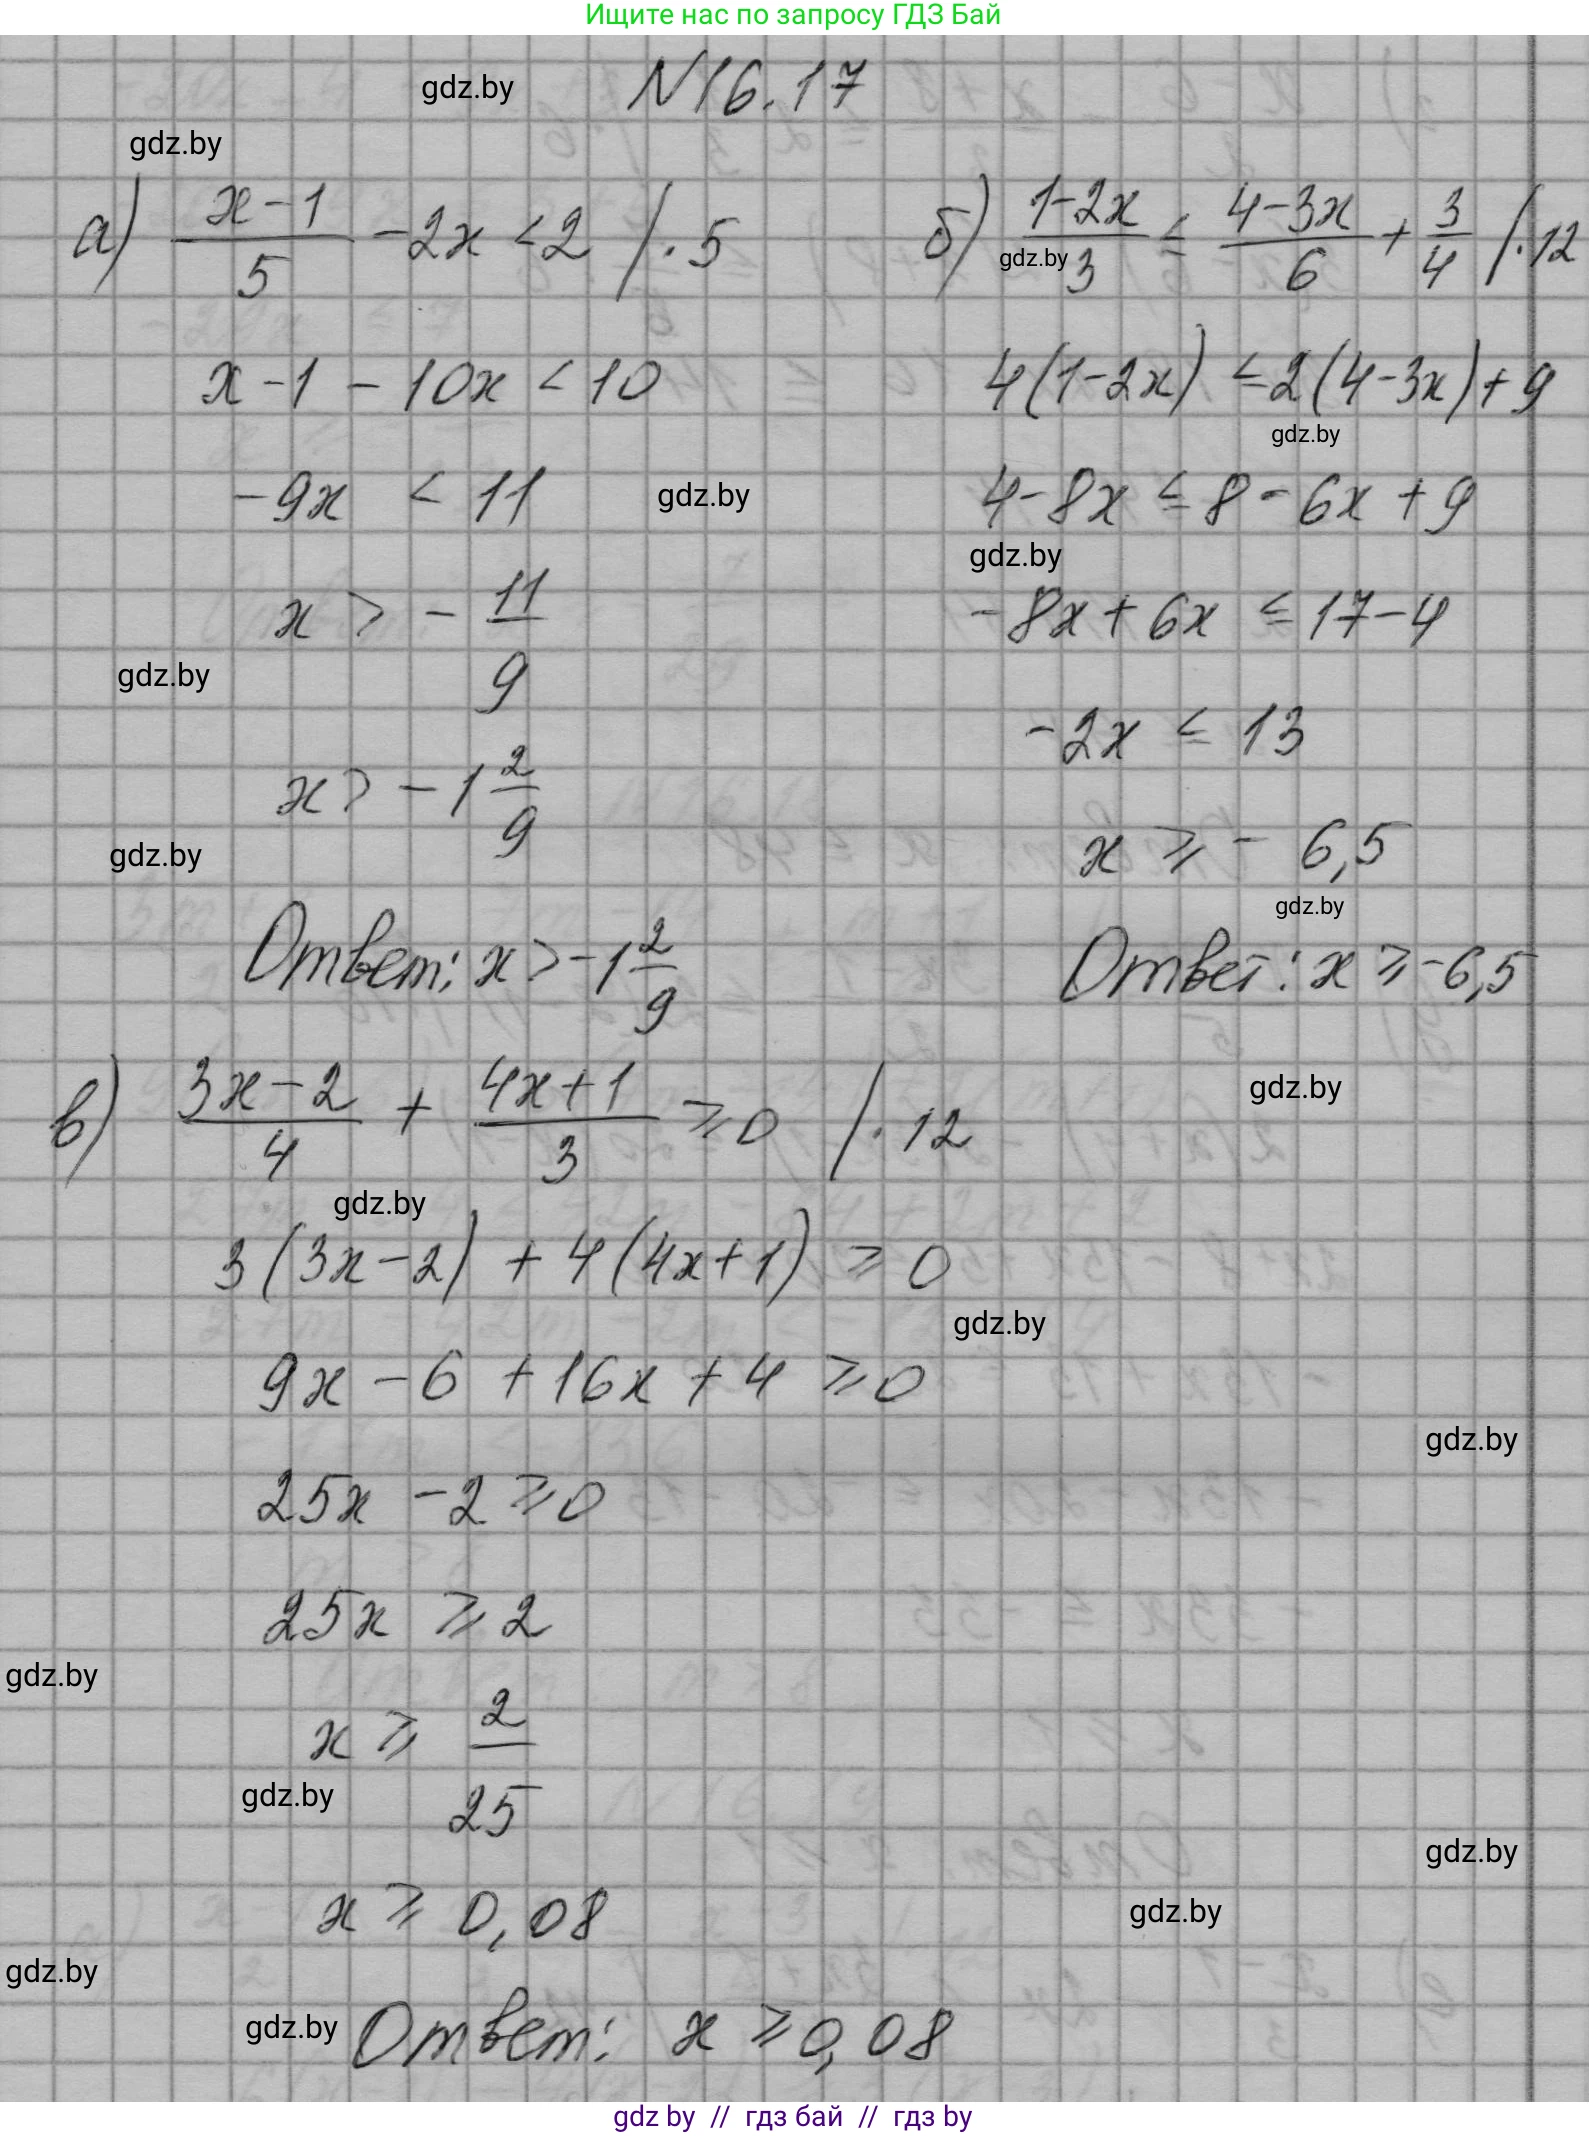 Ищите нас по запросу ГДЗ Бай
gdz.by
N16.17
gdz.by
а) (x-1)/5 -2x < 2 /·5
x-1-10x < 10
-9x < 11
gdz.by
x > - 11/9
gdz.by
x > -1 2/9
gdz.by
Ответ: x > -1 2/9
б) (1-2x)/3 ≤ (4-3x)/6 + 3/4 /·12
gdz.by
4(1-2x) ≤ 2(4-3x)+9
gdz.by
4-8x ≤ 8-6x+9
gdz.by
-8x+6x ≤ 17-4
-2x ≤ 13
x ≥ -6,5
gdz.by
Ответ: x ≥ -6,5
gdz.by
в) (3x-2)/4 + (4x+1)/3 ≥ 0 /·12
gdz.by
3(3x-2)+4(4x+1) ≥ 0
gdz.by
9x-6+16x+4 ≥ 0
gdz.by
25x-2 ≥ 0
25x ≥ 2
gdz.by
x ≥ 2/25
gdz.by
gdz.by
x ≥ 0,08
gdz.by
gdz.by
gdz.by
Ответ: x ≥ 0,08
gdz by // гдз бай // гдз by